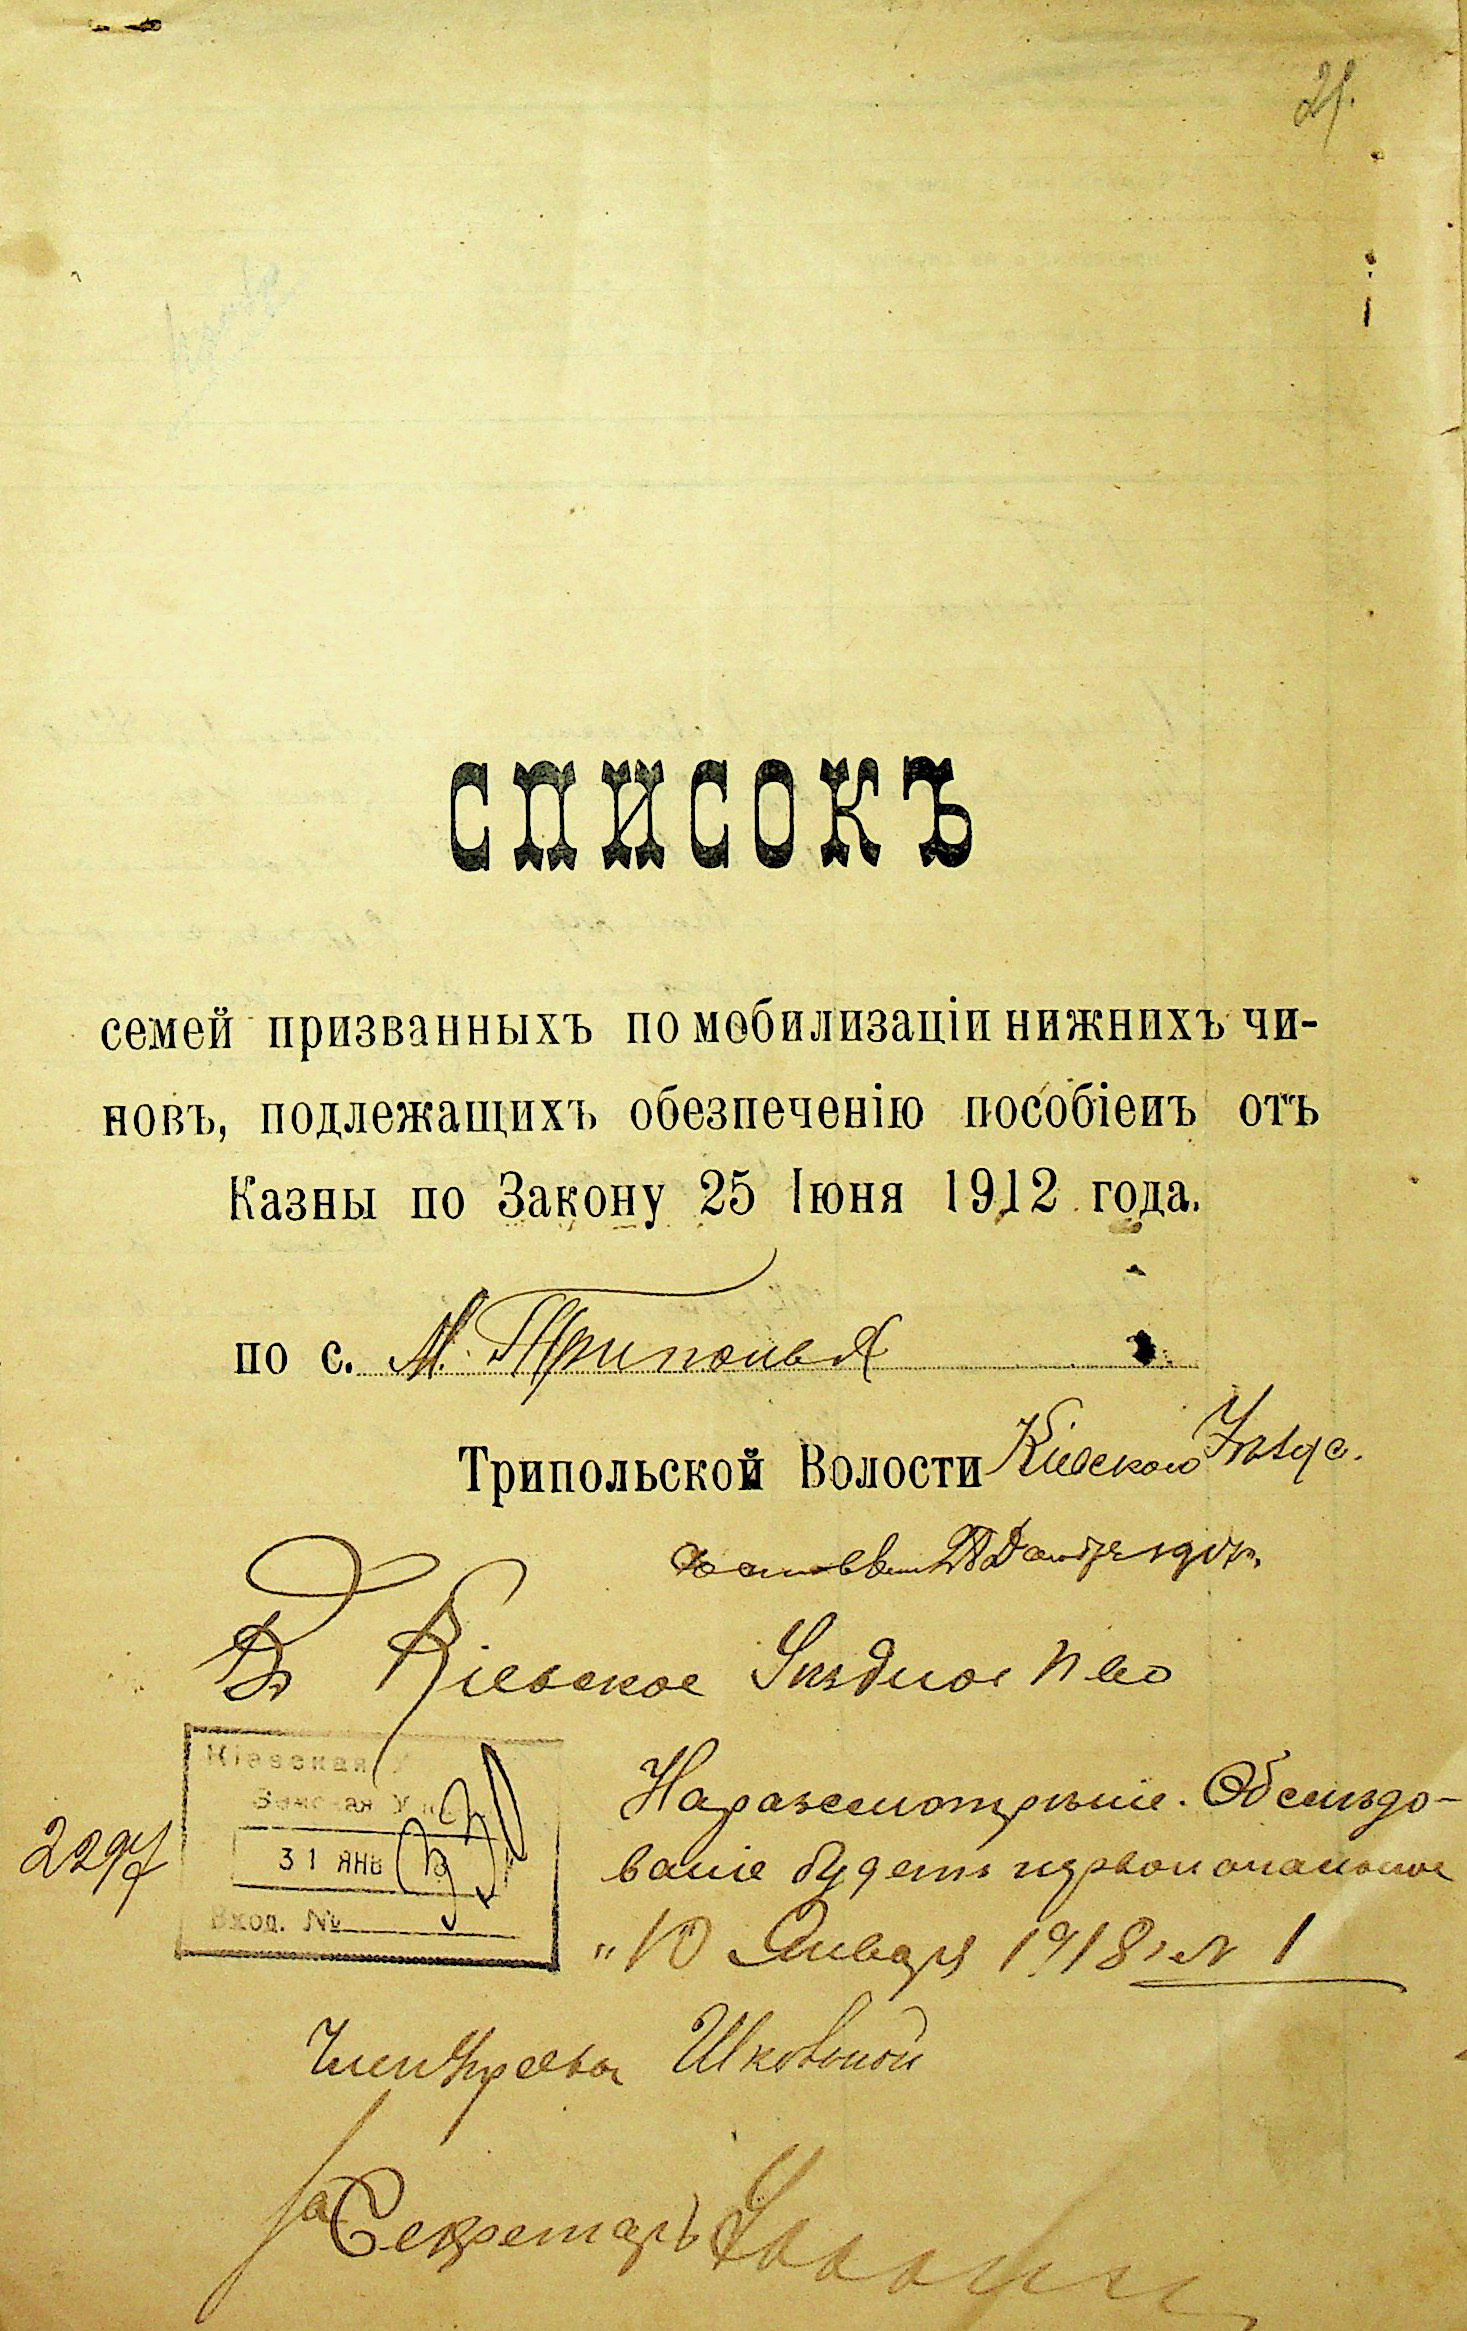 21.
СПИСОКЪ
семей призванныхъ по мобилизаціи нижнихъ чи-
новъ, подлежащихъ обезпеченію пособіемъ отъ
Казны по Закону 25 Іюня 1912 года.
по с. М. Триполья
Трипольской Волости Кіевскаго Уѣзда.
Въ Кіевское Уѣздное П-во
Кіевская У
Земская Упр
31 ЯНВ
Вход. №
2297
На разсмотрѣніе. Обслѣдо-
ваніе будетъ первоначальное
"10 Января 1918 г. № 1
Член Управы Шковиной
за Секретарь